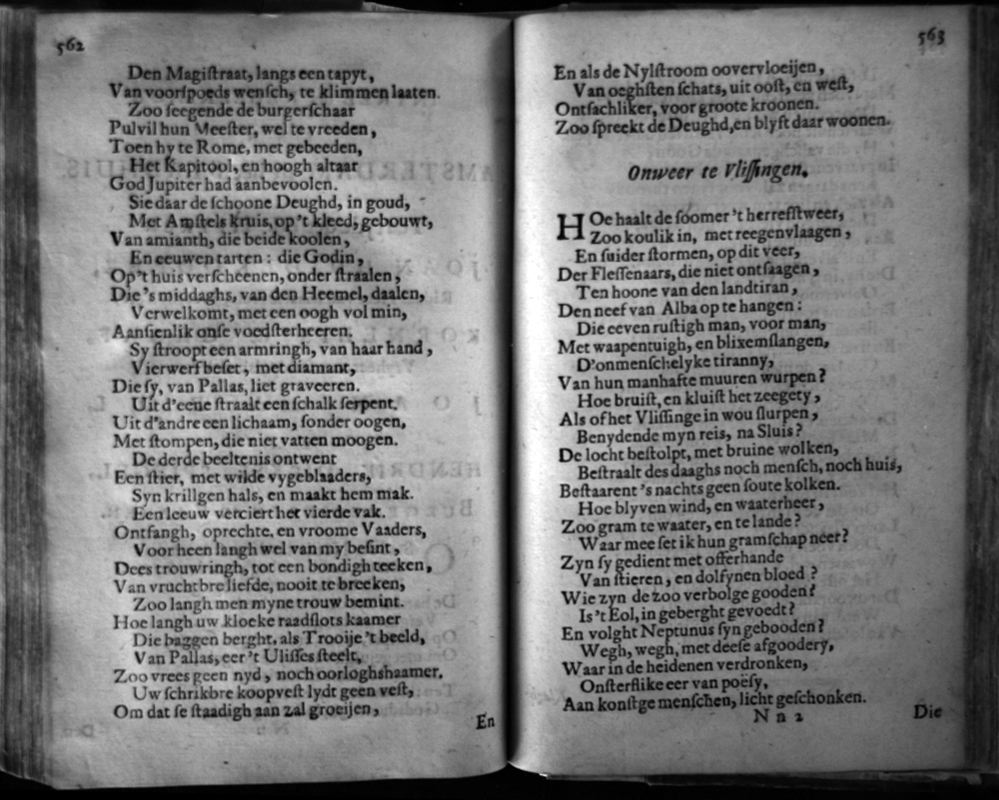 562
Den Magiſtraat, langs een tapyt,
Van voorſpoeds wenſch, te klimmen laaten.
Zoo ſeegende de burgerſchaar
Pulvil hun Meeſter, wel te vreeden,
Toen hy te Rome, met gebeeden,
Het Kapitool, en hoogh altaar
God Jupiter had aanbevoolen.
Sie daar de ſchoone Deughd, in goud,
Met Amſtels kruis, op 't kleed, gebouwt,
Van amianth, die beide koolen,
En eeuwen tarten: die Godin,
Op 't huis verſcheenen, onder ſtraalen,
Die 's middaghs, van den Heemel, daalen,
Verwelkomt, met een oogh vol min,
Aanſienlik onſe voedſterheeren.
Sy ſtroopt een armringh, van haar hand,
Vierwerf beſet, met diamant,
Die ſy, van Pallas, liet graveeren.
Uit d'eene ſtraalt een ſchalk ſerpent.
Uit d'andre een lichaam, ſonder oogen,
Met ſtompen, die niet vatten moogen.
De derde beeltenis ontwent
Een ſtier, met wilde vygeblaaders,
Syn krillgen hals, en maakt hem mak.
Een leeuw verciert het vierde vak.
Ontfangh, oprechte, en vroome Vaaders,
Voor heen langh wel van my beſint,
Dees trouwringh, tot een bondigh teeken,
Van vruchtbre liefde, nooit te breeken,
Zoo langh men myne trouw bemint.
Hoe langh uw kloeke raadſlots kaamer
Die baggen berght, als Trooije 't beeld,
Van Pallas, eer 't Uliſſes ſteelt,
Zoo vrees geen nyd, noch oorloghshaamer.
Uw ſchrikbre koopveſt lydt geen veſt,
Om dat ſe ſtaadigh aan zal groeijen,
En
563
En als de Nylſtroom oovervloeijen,
Van oeghſten ſchats, uit ooſt, en weſt,
Ontſachliker, voor groote kroonen.
Zoo ſpreekt de Deughd, en blyft daar woonen.
Onweer te Vliſſingen.
HOe haalt de ſoomer 't herrefſtweer,
Zoo koulik in, met reegenvlaagen,
En ſuider ſtormen, op dit veer,
Der Fleſſenaars, die niet ontſaagen,
Ten hoone van den landtiran,
Den neef van Alba op te hangen:
Die eeven ruſtigh man, voor man,
Met waapentuigh, en blixemſlangen,
D'onmenſchelyke tiranny,
Van hun manhafte muuren wurpen?
Hoe bruiſt, en kluiſt het zeegety,
Als of het Vliſſinge in wou ſlurpen,
Benydende myn reis, na Sluis?
De locht beſtolpt, met bruine wolken,
Beſtraalt des daaghs noch menſch, noch huis,
Beſtaarent 's nachts geen ſoute kolken.
Hoe blyven wind, en waaterheer,
Zoo gram te waater, en te lande?
Waar mee ſet ik hun gramſchap neer?
Zyn ſy gedient met offerhande
Van ſtieren, en dolfynen bloed?
Wie zyn de zoo verbolge gooden?
Is 't Eol, in geberght gevoedt?
En volght Neptunus ſyn gebooden?
Wegh, wegh, met deeſe afgoodery,
Waar in de heidenen verdronken,
Onſterflike eer van poëſy,
Aan konſtge menſchen, licht geſchonken.
Nn2
Die